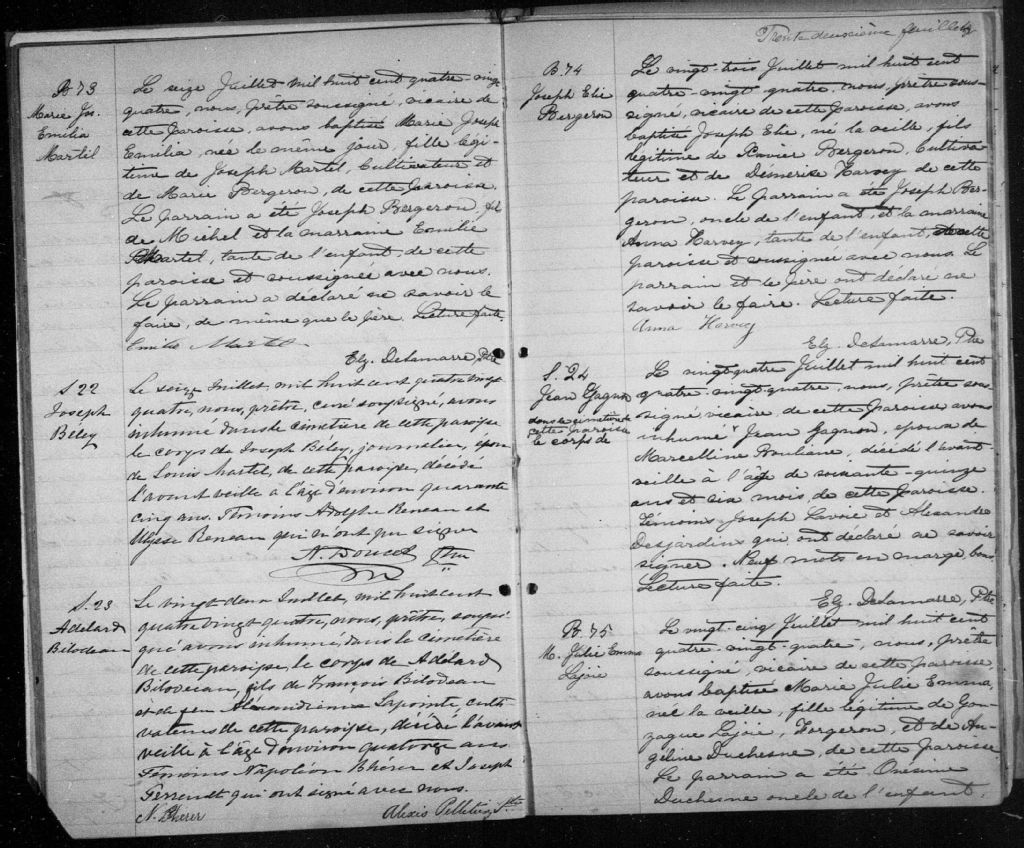 B 73
Marie Jos.
Emilia
Martel
Le seize Juillet mil huit cent quatre-vingt
quatre, nous, prêtre soussigné, vicaire de
cette paroisse, avons baptisé Marie Joseph
Emilia, née le même jour, fille légi-
time de Joseph Martel, Cultivateur et
de Marie Bergeron, de cette paroisse.
Le parrain a été Joseph Bergeron, fils
de Michel et la marraine Emilie
Martel, tante de l'enfant, de cette
paroisse et soussignée avec nous.
Le parrain a déclaré ne savoir le
faire, de même que le père. Lecture faite.
Emilie Martel
Elz. DeLamarre, Ptre
S 22
Joseph
Béley
Le seize Juillet, mil huit cent quatre vingt
quatre, nous, prêtre, curé soussigné, avons
inhumé dans le cimetière de cette paroisse
le corps de Joseph Béley, journalier, époux
de Louise Martel, de cette paroisse, décédé
l'avant veille a l'âge d'environ quarante
cinq ans. Témoins Adolphe Reneau et
Ulysse Reneau qui n'ont pu signer
N. Doucet Ptre
S. 23
Adélard
Bilodeau
Le vingt deux Juillet, mil huit cent
quatre vingt quatre, nous, prêtre, soussi-
gné avons inhumé, dans le cimetière
de cette paroisse, le corps de Adélard
Bilodeau, fils de François Bilodeau
et de feu Alexandrienne Lapointe, culti-
vateurs de cette paroisse, décédé l'avant
veille à l'âge d'environ quatorze ans
Témoins Napoléon Bhérer et Joseph
qui ont signé avec nous.
N. Bhérer
Alexis Pelletier, Ptre
Trente deuxième feuillet
B 74
Joseph Elie
Bergeron
Le vingt-trois Juillet mil huit cent
quatre-vingt-quatre, nous, prêtre sous-
signé, vicaire de cette paroisse, avons
baptisé Joseph Elie, né la veille, fils
légitime de Xavier Bergeron, Cultiva-
teur et de Démerise Harvey de cette
paroisse. Le parrain a été Joseph Ber-
geron, oncle de l'enfant, et la marraine
Anna Harvey, tante de l'enfant, de cette
paroisse et soussignée avec nous. Le
parrain et le père ont déclaré ne
savoir le faire. Lecture faite.
Anna Harvey
Elz. DeLamarre, Ptre
S. 24
Jean Gagnon
dans le cimetière de
cette paroisse
le corps de
Le vingt-quatre Juillet mil huit cent
quatre-vingt-quatre, nous, prêtre sous-
signé vicaire, de cette paroisse avons
inhumé Jean Gagnon, époux de
Marcelline Bouliane, décédé l'avant
veille à l'âge de soixante-quinze
ans et six mois, de cette paroisse.
Témoins Joseph Lavoie et Alexandre
Desjardins qui ont déclaré ne savoir
signer. Neuf mots en marge, bons
Lecture faite.
Elz. DeLamarre, Ptre
B. 75
Me. Julie Emma
Lajoie
Le vingt-cinq Juillet mil huit cent
quatre-vingt-quatre, nous, prêtre
soussigné, vicaire de cette paroisse,
avons baptisé Marie Julie Emma,
née la veille, fille légitime de Gon-
zague Lajoie, Forgeron, et de An-
gélina Duchesne, de cette paroisse
Le parrain a été Onésime
Duchesne oncle de l'enfant.